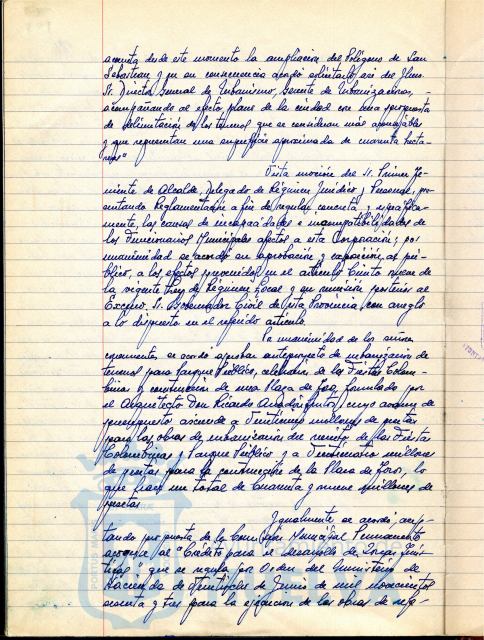 acometa desde este momento la ampliación del Polígono de San
Sebastian y que en consecuencia acordó solicitarlo así del Ilmo.
Sr. Director General de Urbanismo, Gerente de Urbanizaciones,
acompañando al efecto plano de la ciudad con una propuesta
de delimitación de los terrenos que se consideran más aconsejables
y que representan una superficie aproximada de cuarenta hecta-
reas"
Vista moción del Sr. Primer Te-
niente de Alcalde, Delegado de Régimen Jurídico y Personal, pre-
sentando Reglamentación a fin de regular concreta y
mente, las causas de incapacidades e incompatibilidades de
los Funcionarios Municipales afectos a esta Corporación; por
unanimidad se acordó su aprobación y exposición al pú-
blico, a los efectos prevenidos en el artículo Ciento nueve de
la vigente Ley de Régimen Local y su remisión posterior al
Excmo. Sr. Gobernador Civil de esta Provincia, con arreglo
a lo dispuesto en el referido artículo.
Por unanimidad de los señores
concurrentes, se acordó aprobar anteproyecto de urbanización de
terrenos para Parque Público, celebración de las Fiestas Colom-
binas y construcción de una Plaza de Toros, formulado por
el Arquitecto Don Ricardo Anadón Frutos, cuyo avance de
presupuesto asciende a Veintiocho millones de pesetas
para las obras de urbanización del recinto de las Fiestas
Colombinas y Parque Público y a Dieciocho millones
de pesetas para la construcción de la Plaza de Toros, lo
que hace un total de Cuarenta y nueve millones de
pesetas.
Igualmente se acordó, acep-
tando propuesta de la Comisión Municipal Permanente
acogerse al "Crédito para el desarrollo de Zonas Turís-
ticas" que se regula por Orden del Ministerio de
Hacienda de Veintiocho de Junio de mil novecientos
sesenta y tres para la ejecución de las obras de refe-